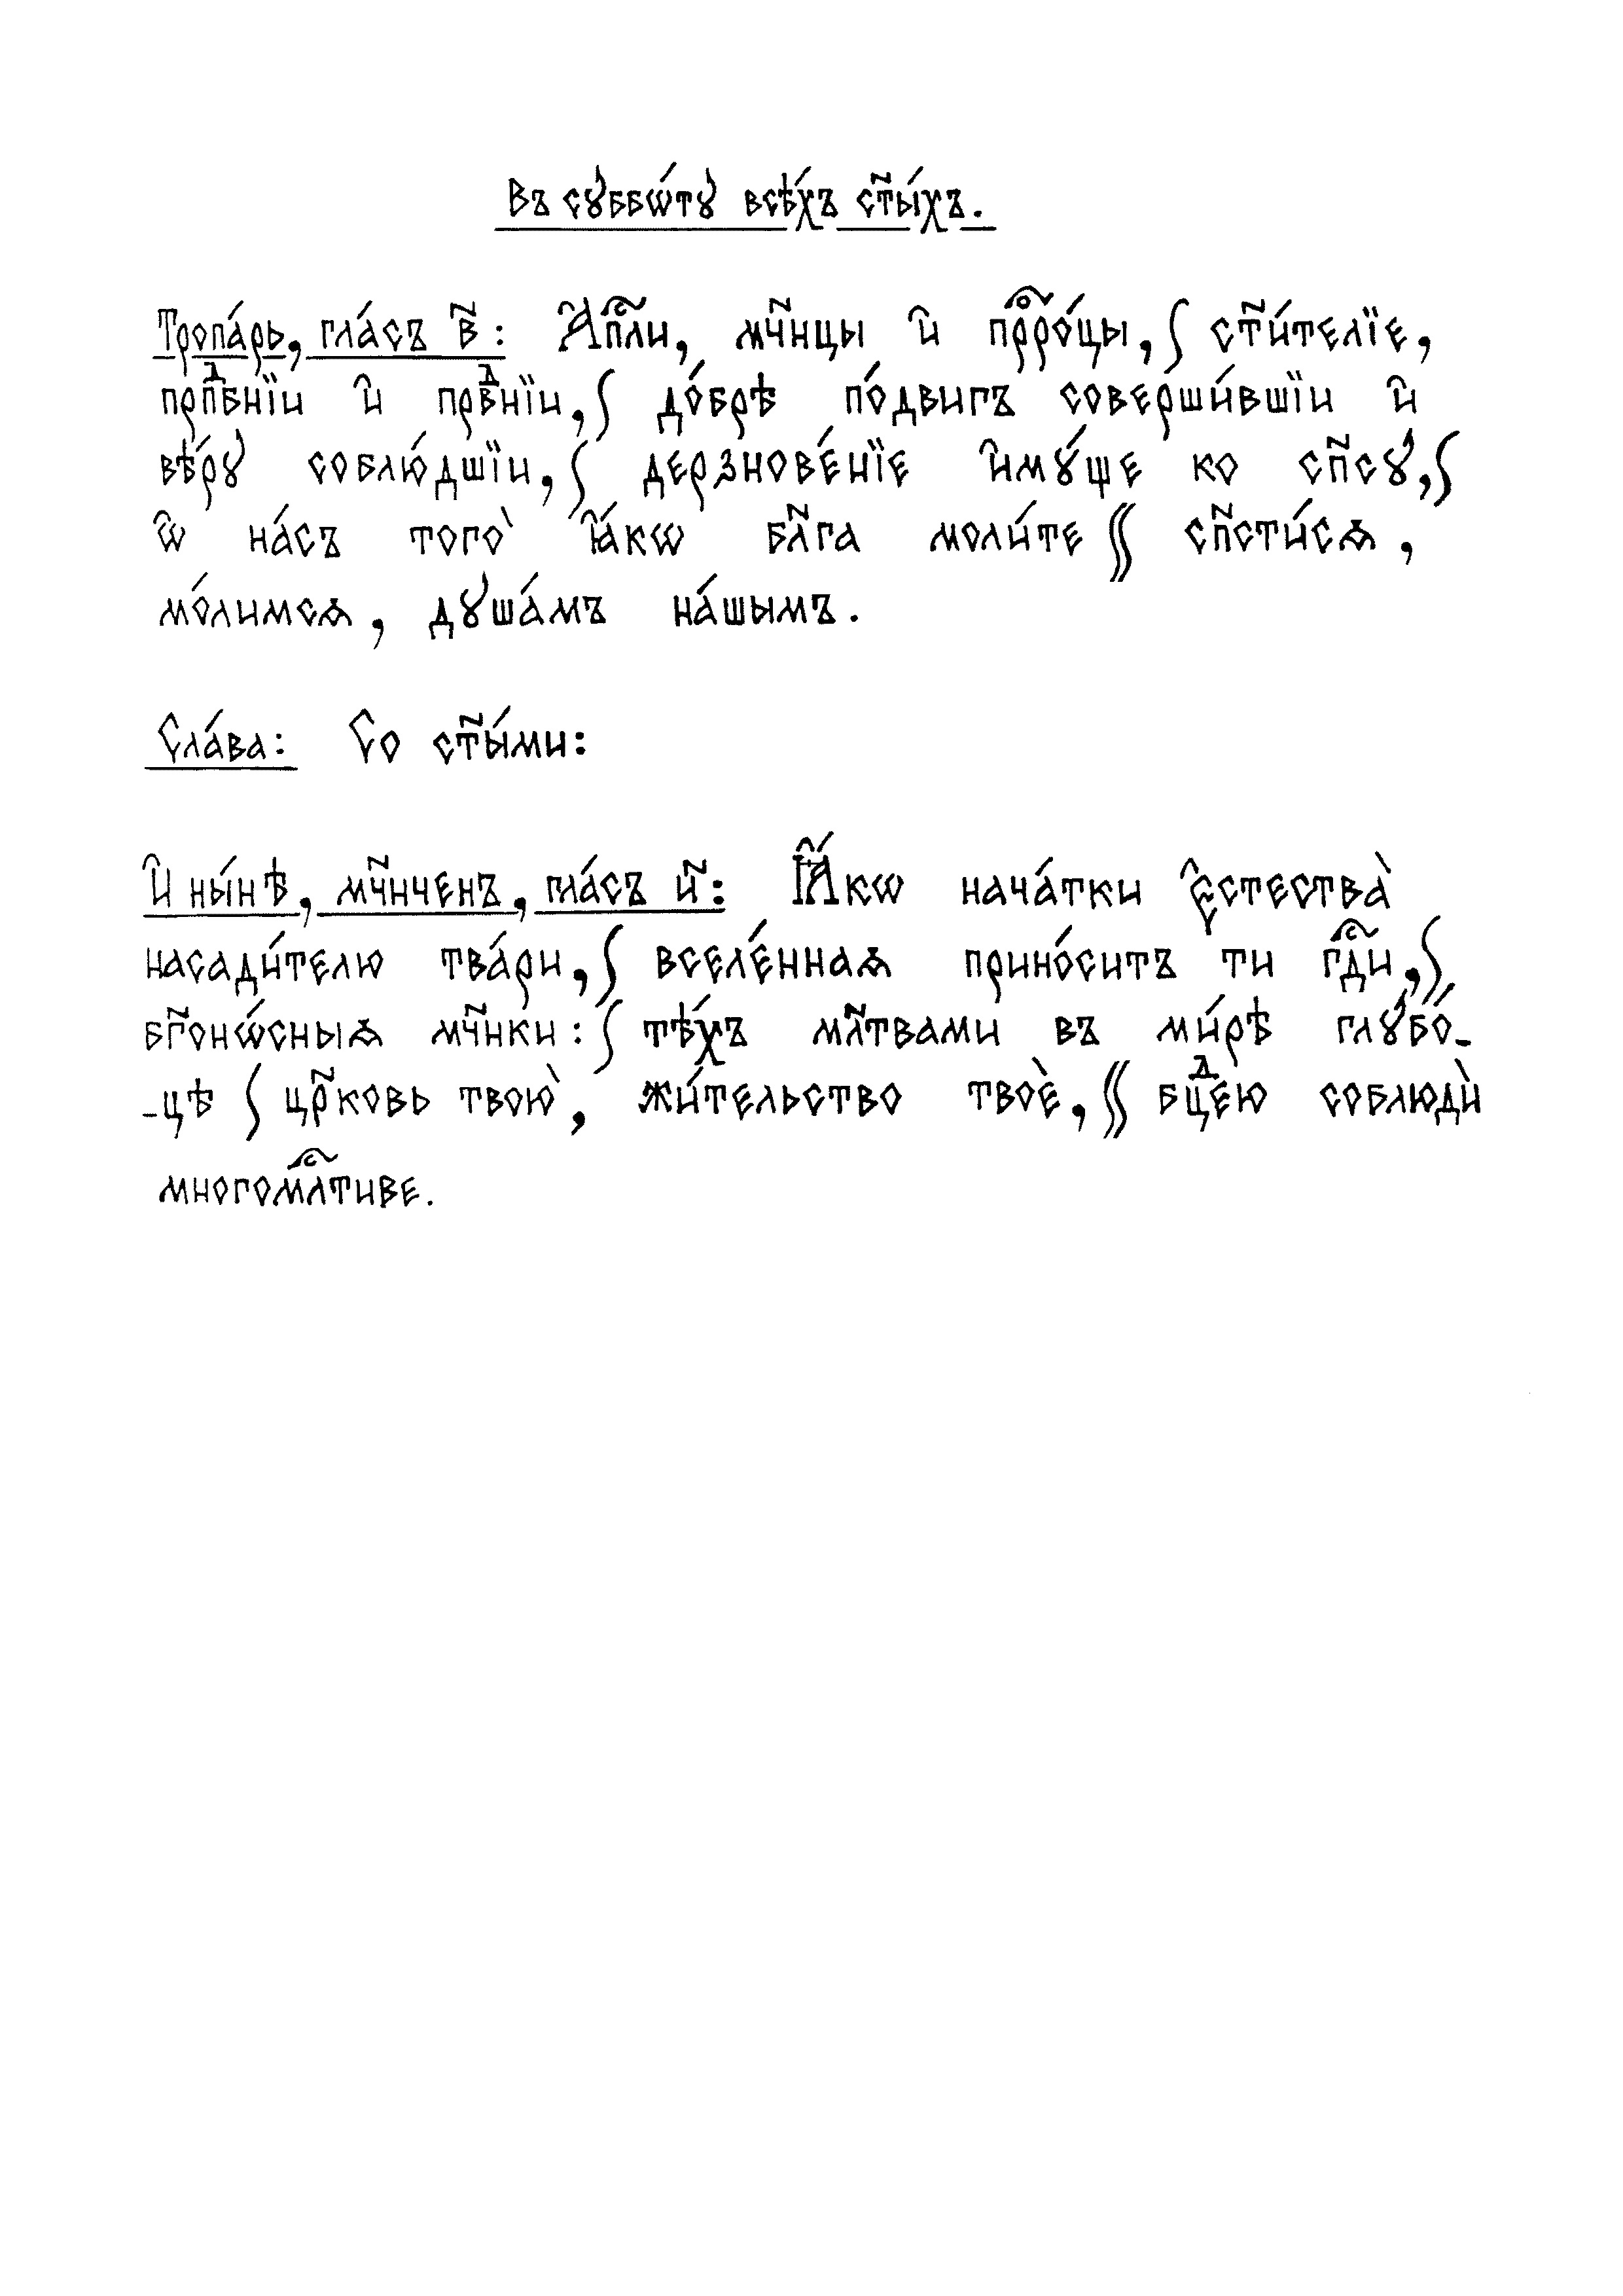 Въ сꙋббѡ́тꙋ всѣ́хъ ст҃ы́хъ.
Тропа́рь, гла́съ в҃: А҆пⷭ҇ли, мч҃нцы и҆ прⷪ҇ро́цы, ⟆ ст҃и́телїе,
прпⷣбнїи и҆ првⷣнїи, ⟆ до́брѣ по́двигъ соверши́вшїи и҆
вѣ́рꙋ соблю́дшїи, ⟆ дерзнове́нїе и҆мꙋ́ще ко сп҃сꙋ́, ⟆
ѡ҆ на́съ того̀ ꙗ҆́кѡ бл҃га моли́те ⟆⟆ сп҃сти́сѧ,
мо́лимсѧ, дꙋша́мъ на́шымъ.
Сла́ва: Со ст҃ы́ми:
И҆ ны́нѣ, мч҃нченъ, гла́съ и҃: Ꙗ҆́кѡ нача́тки є҆стества̀
насади́телю тва́ри, ⟆ вселе́ннаѧ прино́ситъ ти гдⷭ҇и, ⟆
бг҃онѡ́сныѧ мч҃нки: ⟆ тѣ́хъ мл҃твами въ ми́рѣ глꙋбо́-
-цѣ ⟆ цр҃ковь твою̀, жи́тельство твоѐ, ⟆⟆ бцⷣею соблюдѝ
многомлⷭ҇тиве.